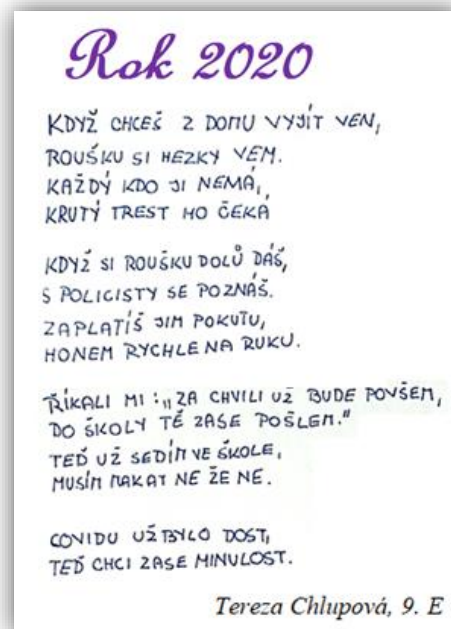 Rok 2020
KDYŽ CHCEŠ Z DOMU VYJÍT VEN,
ROUŠKU SI HEZKY VEM.
KAŽDÝ KDO JI NEMÁ,
KRUTÝ TREST HO ČEKÁ
KDYŽ SI ROUŠKU DOLŮ DÁŠ,
S POLICISTY SE POZNÁŠ.
ZAPLATÍŠ JIM POKUTU,
HONEM RYCHLE NA RUKU.
ŘÍKALI MI: „ZA CHVILI UŽ BUDE POVŠEM,
DO ŠKOLY TĚ ZASE POŠLEM."
TEĎ UŽ SEDÍM VE ŠKOLE,
MUSÍM MAKAT NE ŽE NE.
COVIDU UŽ BYLO DOST,
TEĎ CHCI ZASE MINULOST.
Tereza Chlupová, 9. E